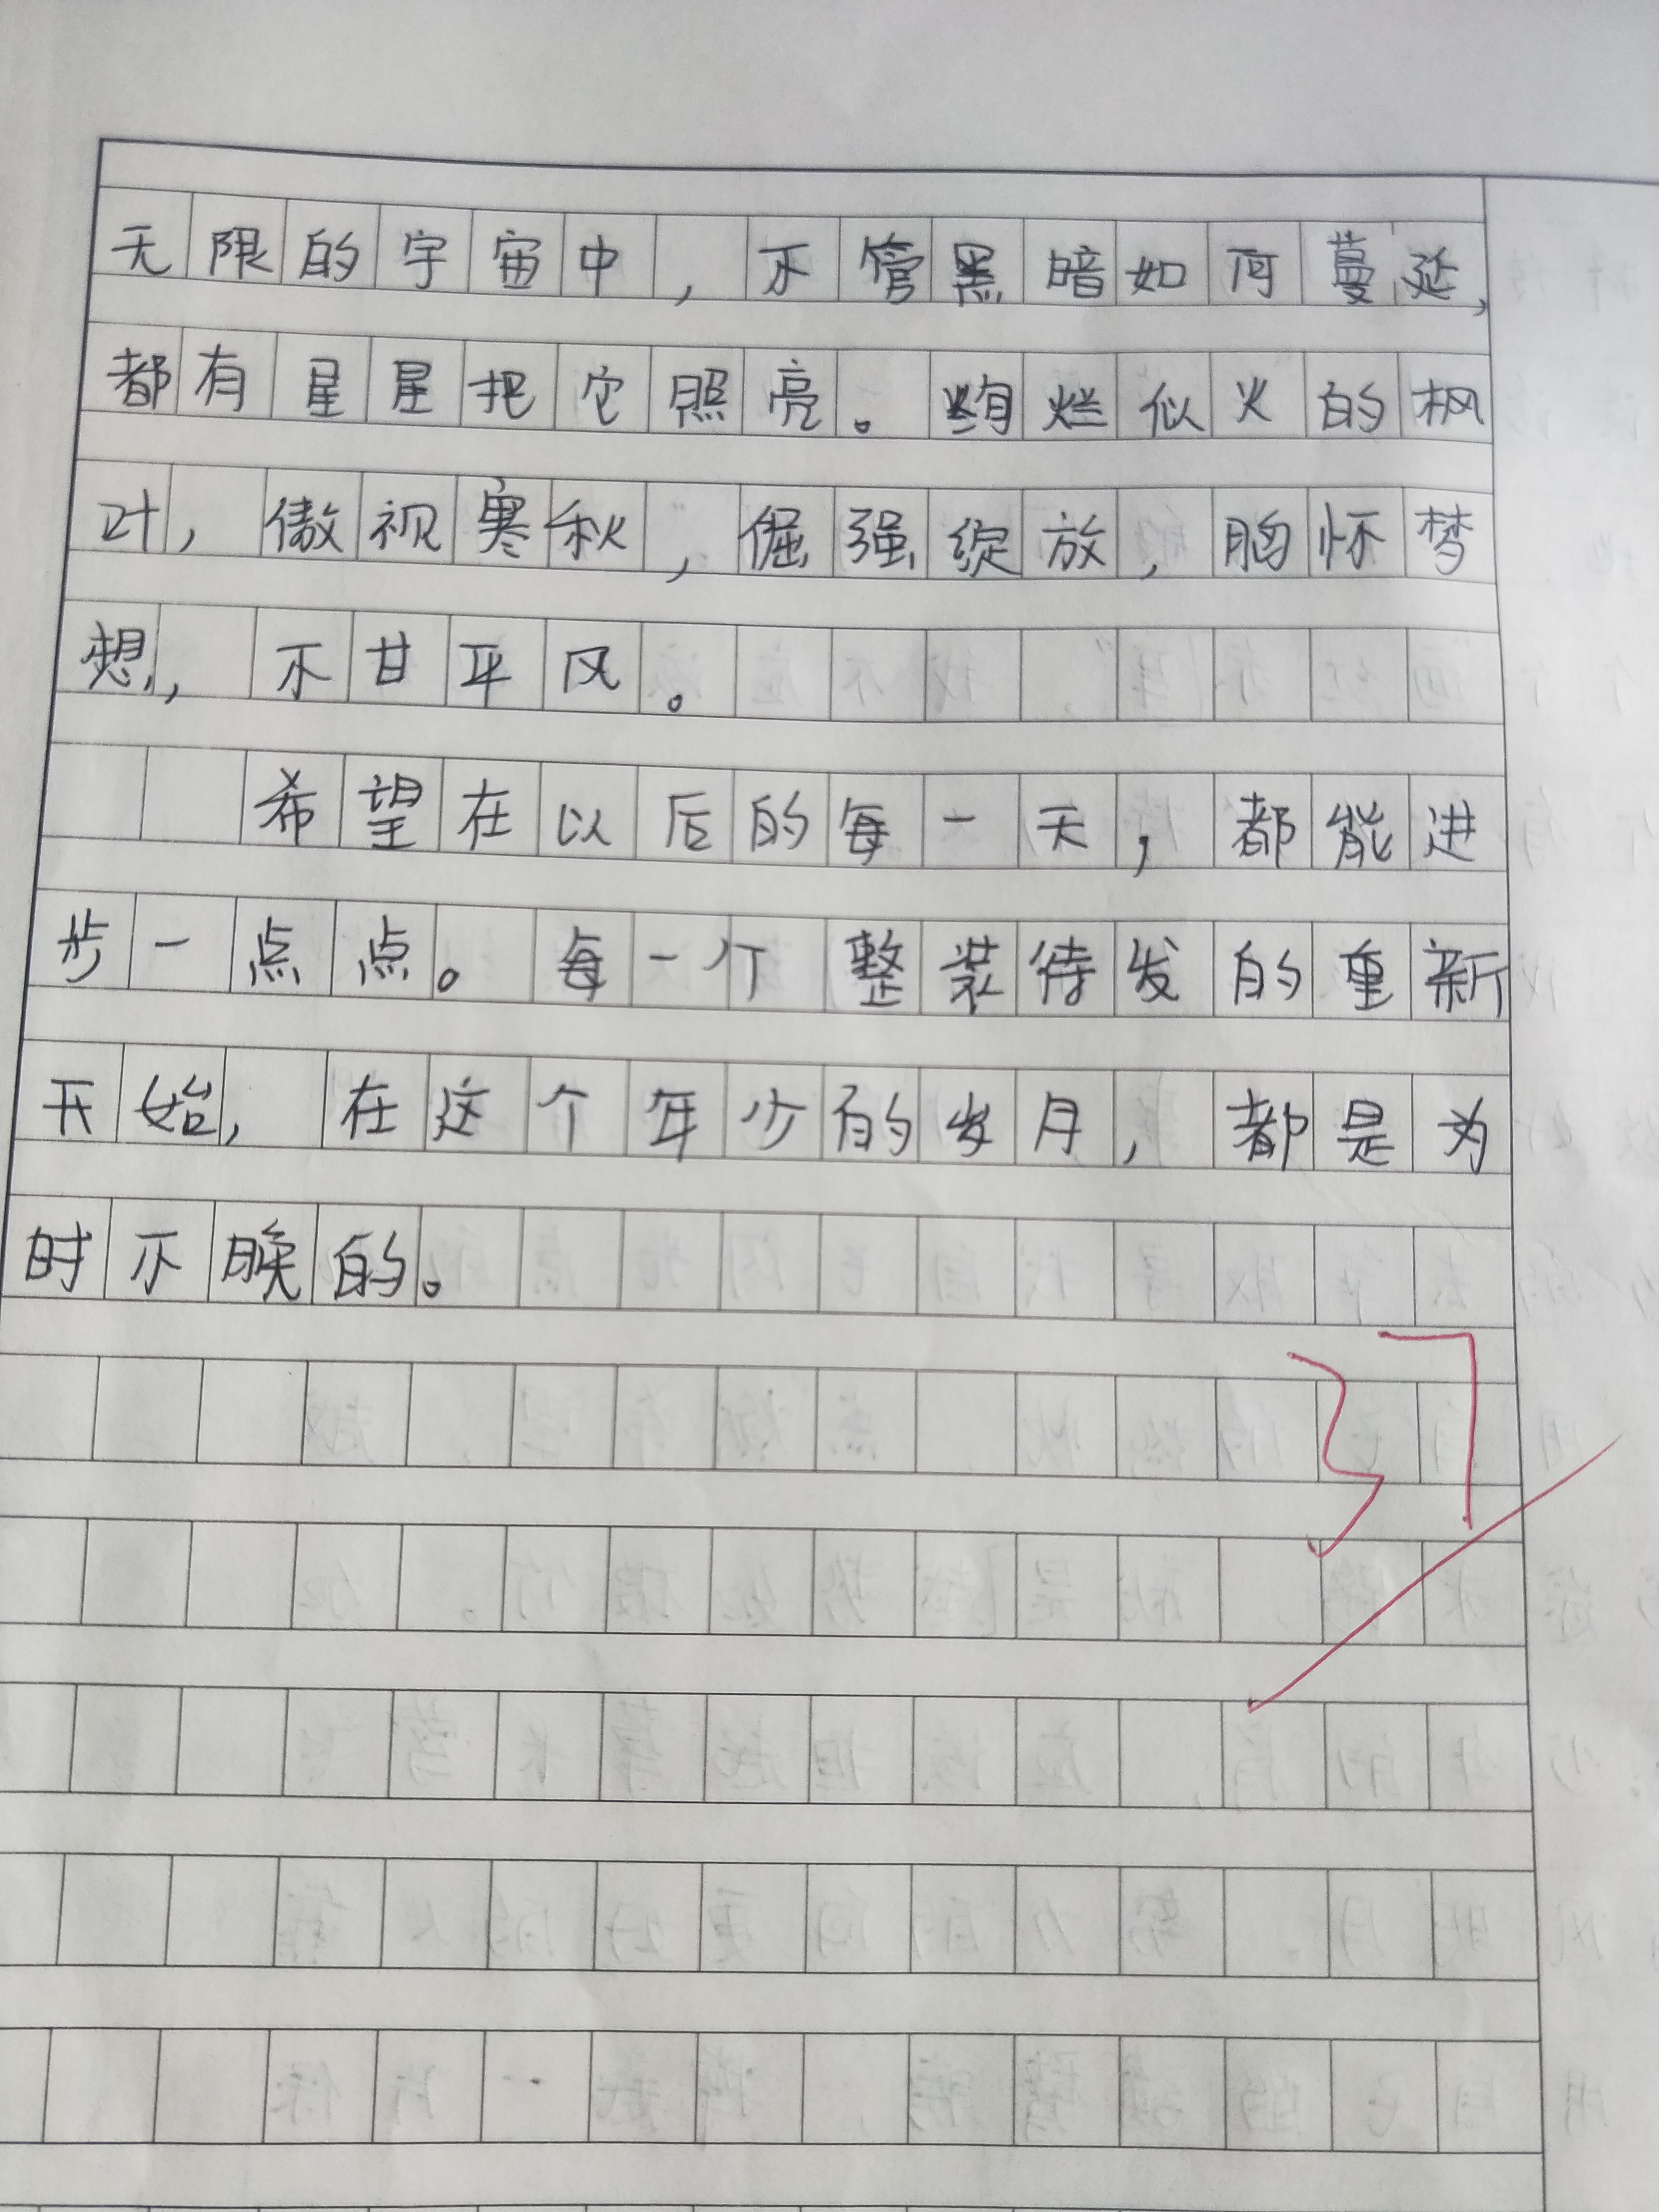 无限的宇宙中，不管黑暗如何蔓延，
都有星星把它照亮。绚烂似火的枫
叶，傲视寒秋，倔强绽放，胸怀梦
想，不甘平风。
希望在以后的每一天，都能进
步一点点。每一个整装待发的重新
开始，在这个年少的岁月，都是为
时不晚的。
37